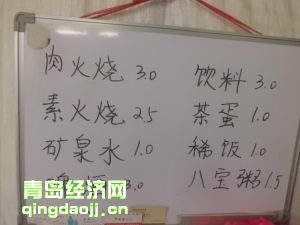 肉火烧 3.0
素火烧 2.5
矿泉水 1.0
3.0
饮料 3.0
茶蛋 1.0
稀饭 1.0
八宝粥 1.5
青岛经济网
qingdaojj.cn